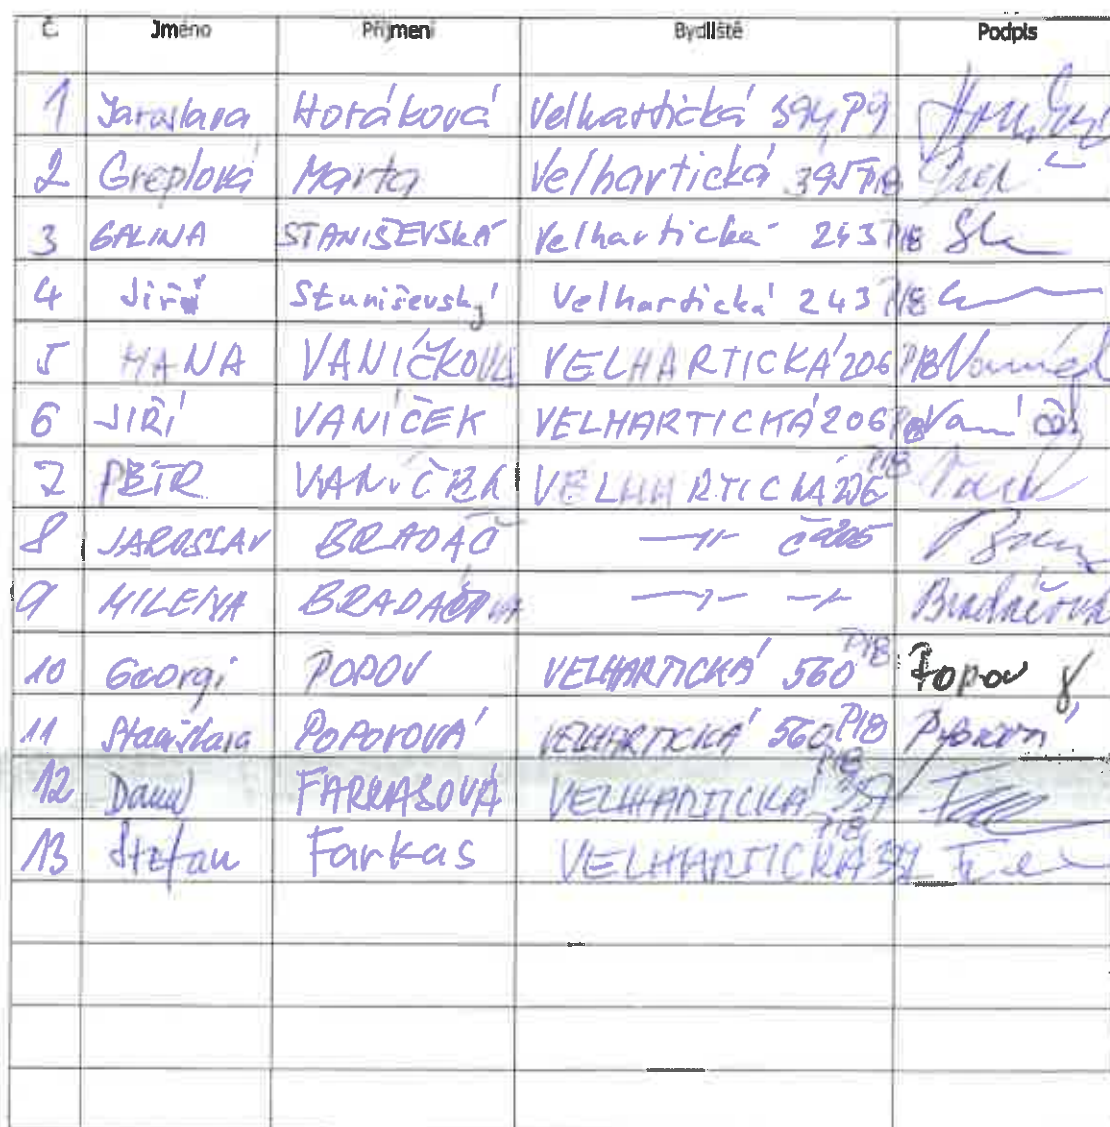 Č. Jméno Příjmení Bydliště Podpis
1 Jaroslava Horáková Velhartická 394 P9
2 Greplová Marta Velhartická 395 P18
3 GALINA STANIŠEVSKÁ Velhartická 243 P18
4 Jiří Staniševský Velhartická 243 P18
5 HANA VANÍČKOVÁ VELHARTICKÁ 206 P18
6 JIŘÍ VANÍČEK VELHARTICKÁ 206 P18
7 PETR VANÍČEK VELHARTICKÁ 206 P18
8 JAROSLAV BRADÁČ —〃— č
9 MILENA BRADÁČOVÁ —〃— —〃— Bradáčová
10 Georgi POPOV VELHARTICKÁ 560 P18 Popov
11 Stanislava POPOVOVÁ VELHARTICKÁ 560 P18
12 FARKASOVÁ VELHARTICKÁ P18
13 Štefan Farkas VELHARTICKÁ P18